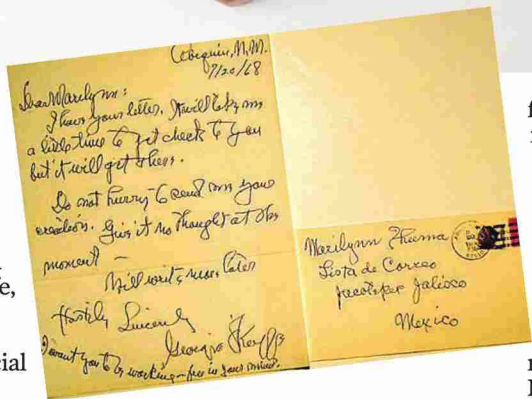 Abiquiu, N.M.
7/20/68
Dear Marilynn:
I have your letter. It will take me
a little time to get check to you
but it will get there.
Do not hurry to send me your
creation. Give it no thought at the
moment —
Will write more later
Hastily Sincerely
Georgia O'Keeffe
I want you to be working — free in your mind.
Marilynn Thuma
Lista de Correo
Jocotepec Jalisco
Mexico
e,
cial
f